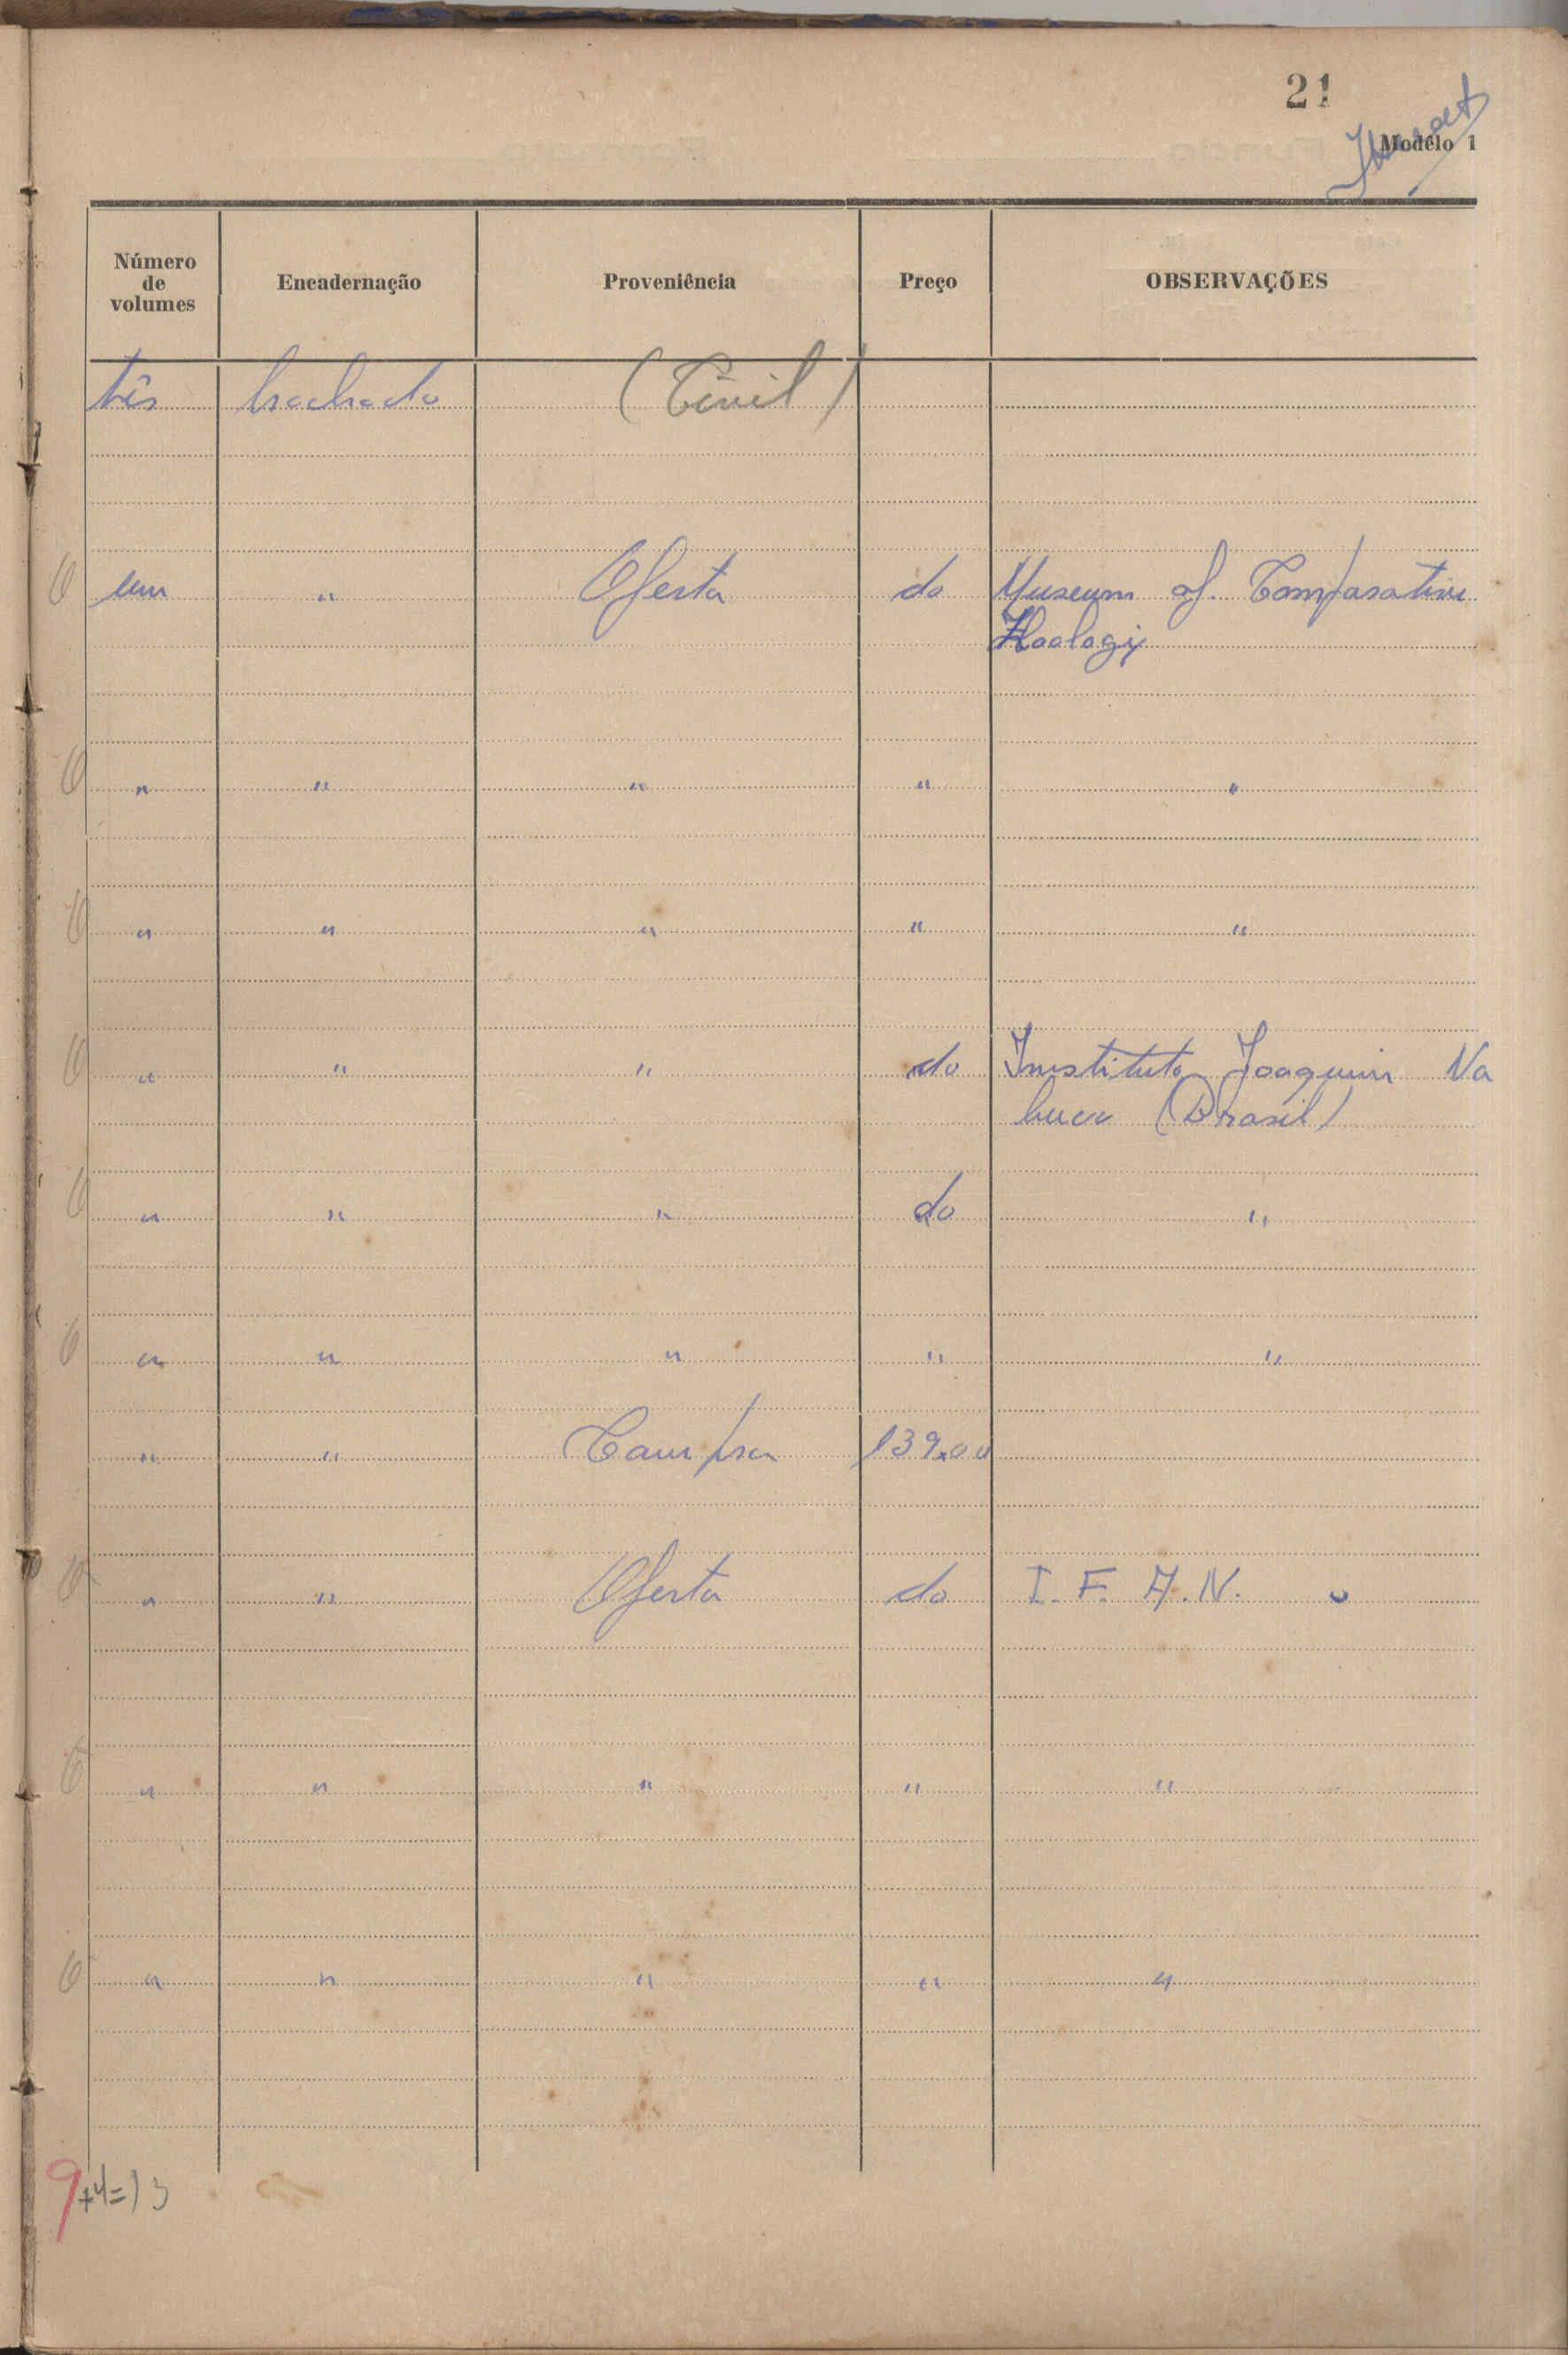 21
Modêlo 1
Número de volumes Encadernação Proveniência Preço OBSERVAÇÕES
três brochado (Civil)
O um " Oferta do Museum of. Comparative
Zoology
O " " " " "
O " " " " "
O " " " do Instituto Joaquim Na
buco (Brasil)
O " " " do "
O " " " " "
" " Compra 139.00
O " " Oferta do I. F. A. N.
O " " " " "
O " " " " "
9+4=13